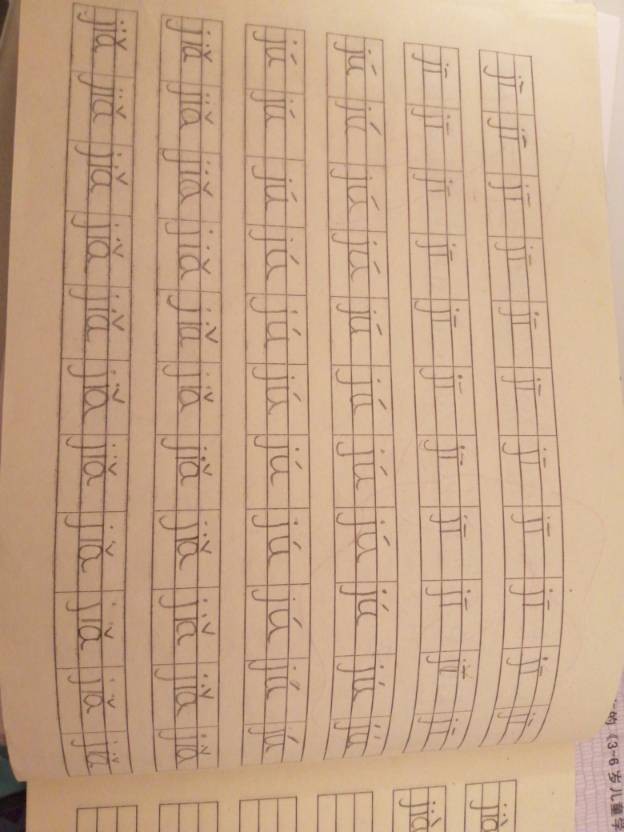 jī jī jī jī jī jī jī jī jī jī jī
jī jī jī jī jī jī jī jī jī jī jī
jú jú jú jú jú jú jú jú jú jú jú
jú jú jú jú jú jú jú jú jú jú jú
jiǎ jiǎ jiǎ jiǎ jiǎ jiǎ jiǎ jiǎ jiǎ jiǎ jiǎ
jiǎ jiǎ jiǎ jiǎ jiǎ jiǎ jiǎ jiǎ jiǎ jiǎ jiǎ
的《3-6岁儿童学